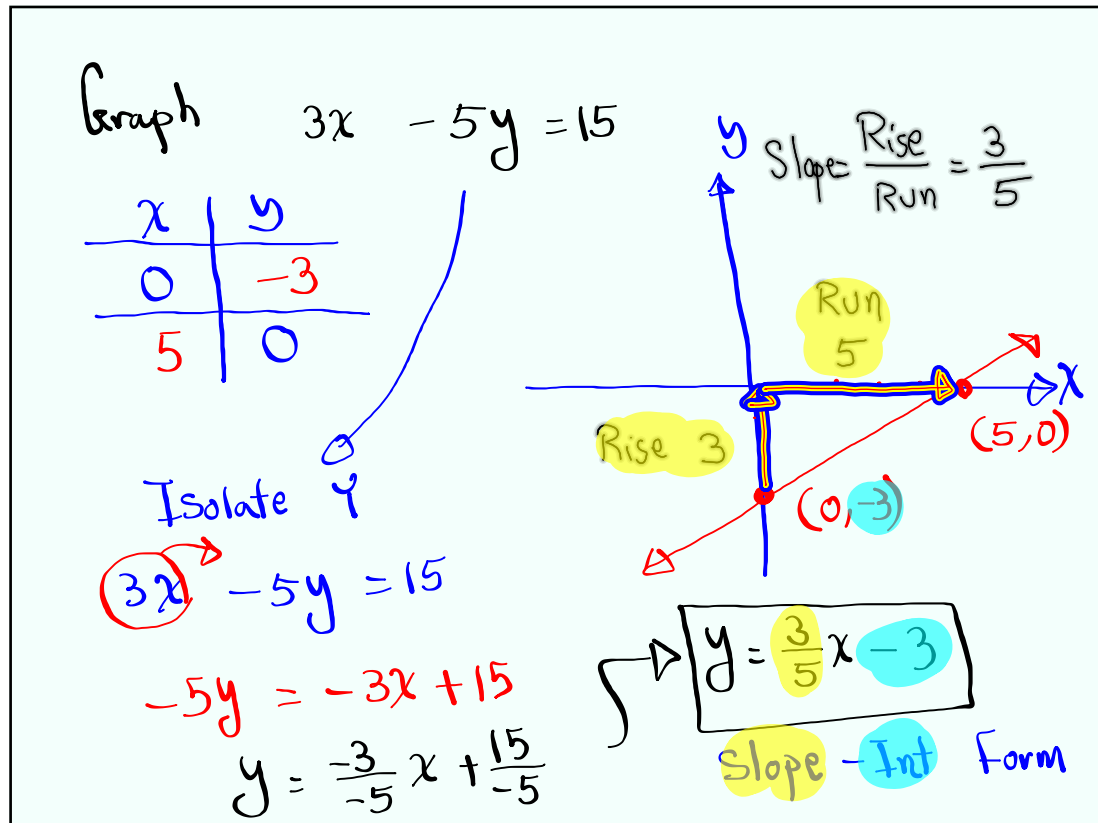 Graph 3x - 5y = 15
x y
0 -3
5 0
Isolate Y
3x - 5y = 15
-5y = -3x + 15
y = \frac{-3}{-5}x + \frac{15}{-5}
y
Slope = \frac{Rise}{Run} = \frac{3}{5}
Run
5
x
Rise 3
(5,0)
(0,-3)
y = \frac{3}{5}x - 3
Slope - Int Form